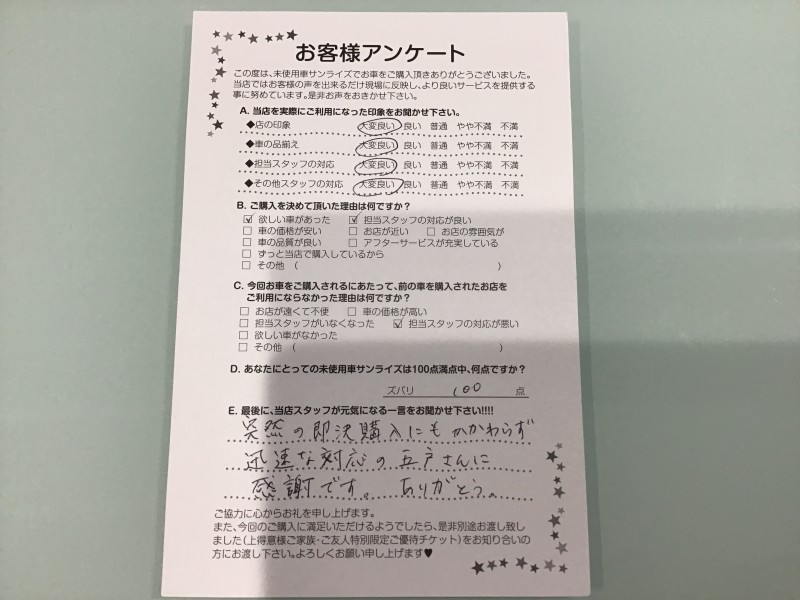 お客様アンケート
この度は、未使用車サンライズでお車をご購入頂きありがとうございました。
当店ではお客様の声を出来るだけ現場に反映し、より良いサービスを提供する
事に努めています。是非お声をおきかせ下さい。
A. 当店を実際にご利用になった印象をお聞かせ下さい。
◆店の印象 大変良い 良い 普通 やや不満 不満
◆車の品揃え 大変良い 良い 普通 やや不満 不満
◆担当スタッフの対応 大変良い 良い 普通 やや不満 不満
◆その他スタッフの対応 大変良い 良い 普通 やや不満 不満
B. ご購入を決めて頂いた理由は何ですか？
☑ 欲しい車があった ☑ 担当スタッフの対応が良い
□ 車の価格が安い □ お店が近い □ お店の雰囲気が
□ 車の品質が良い □ アフターサービスが充実している
□ ずっと当店で購入しているから
□ その他（ ）
C. 今回お車をご購入されるにあたって、前の車を購入されたお店を
ご利用にならなかった理由は何ですか？
□ お店が遠くて不便 □ 車の価格が高い
□ 担当スタッフがいなくなった ☑ 担当スタッフの対応が悪い
□ 欲しい車がなかった
□ その他（ ）
D. あなたにとっての未使用車サンライズは100点満点中、何点ですか？
ズバリ 100 点
E. 最後に、当店スタッフが元気になる一言をお聞かせ下さい!!!!
突然の即決購入にもかかわらず
迅速な対応の五戸さんに
感謝です。ありがとう。
ご協力に心からお礼を申し上げます。
また、今回のご購入に満足いただけるようでしたら、是非別途お渡し致し
ました（上得意様ご家族・ご友人特別限定ご優待チケット）をお知り合いの
方にお渡し下さい。よろしくお願い申し上げます♥